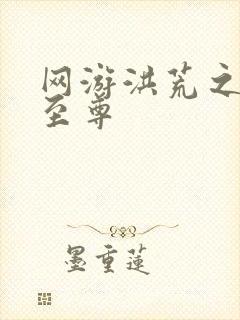 网游洪荒之
至尊
墨重莲